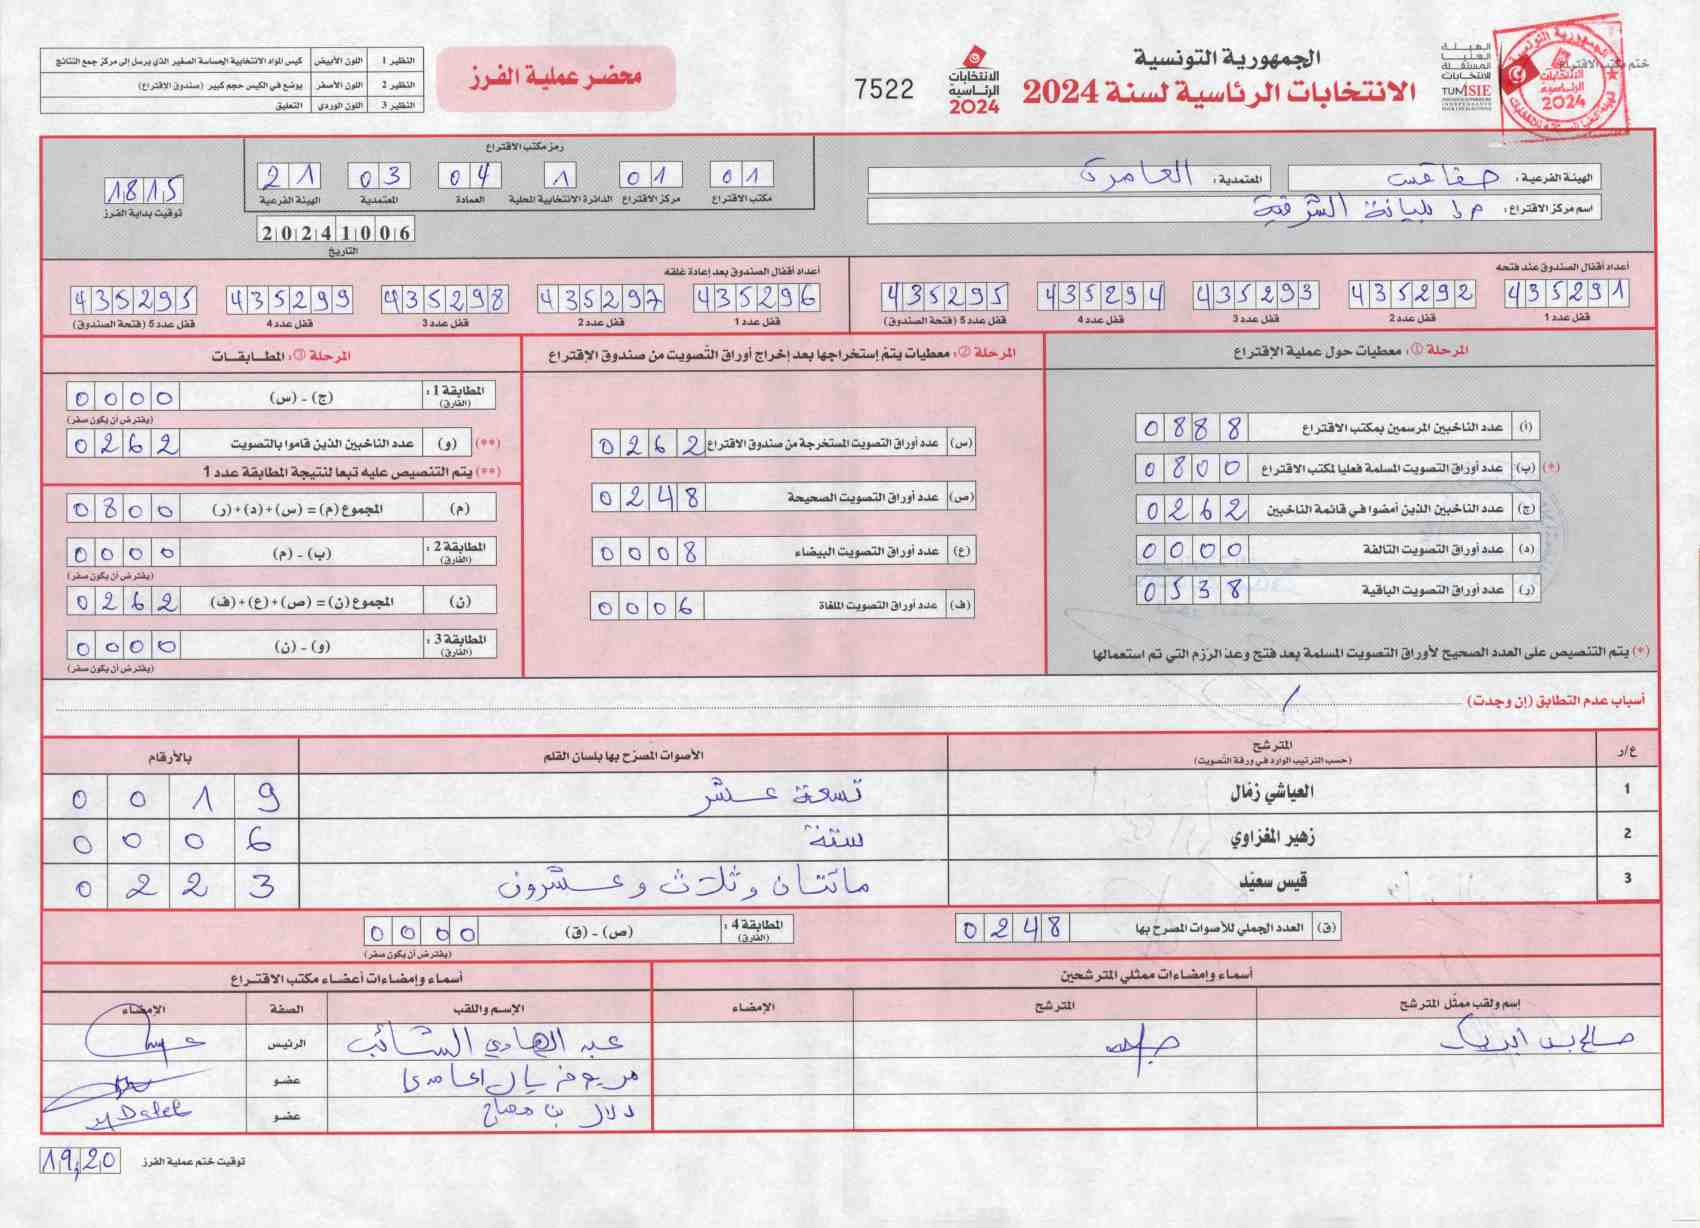 الجمهورية التونسية
الانتخابات الرئاسية لسنة 2024
الهيئة العليا المستقلة للانتخابات
TUNISIE
ختم مكتب الاقتراع
الجمهورية التونسية
الانتخابات الرئاسية 2024
الانتخابات الرئاسية 2024
7522
محضر عملية الفرز
النظير 1 اللون الأبيض كيس المواد الانتخابية الحساسة الصغير الذي يرسل إلى مركز جمع النتائج
النظير 2 اللون الأصفر يوضع في الكيس حجم كبير (صندوق الاقتراع)
النظير 3 اللون الوردي التعليق
الهيئة الفرعية : صفاقس المعتمدية : العامرة
اسم مركز الاقتراع : م ا بليانة الشرقية
رمز مكتب الاقتراع
01 01 1 04 03 21
مكتب الاقتراع مركز الاقتراع الدائرة الانتخابية المحلية العمادة المعتمدية الهيئة الفرعية
1815
توقيت بداية الفرز
20241006
التاريخ
أعداد أقفال الصندوق عند فتحه
435291 435292 435293 435294 435295
قفل عدد 1 قفل عدد 2 قفل عدد 3 قفل عدد 4 قفل عدد 5 (فتحة الصندوق)
أعداد أقفال الصندوق بعد إعادة غلقه
435296 435297 435298 435299 435295
قفل عدد 1 قفل عدد 2 قفل عدد 3 قفل عدد 4 قفل عدد 5 (فتحة الصندوق)
المرحلة ① : معطيات حول عملية الإقتراع
(أ) عدد الناخبين المرسمين بمكتب الاقتراع 0888
(*) (ب) عدد أوراق التصويت المسلمة فعليا لمكتب الاقتراع 0800
(ج) عدد الناخبين الذين أمضوا في قائمة الناخبين 0262
(د) عدد أوراق التصويت التالفة 0000
(ر) عدد أوراق التصويت الباقية 0538
(*) يتم التنصيص على العدد الصحيح لأوراق التصويت المسلمة بعد فتح وعد الرزم التي تم استعمالها
المرحلة ② : معطيات يتم إستخراجها بعد إخراج أوراق التصويت من صندوق الإقتراع
(س) عدد أوراق التصويت المستخرجة من صندوق الاقتراع 0262
(ص) عدد أوراق التصويت الصحيحة 0248
(ع) عدد أوراق التصويت البيضاء 0008
(ف) عدد أوراق التصويت الملغاة 0006
المرحلة ③ : المطابقات
المطابقة 1 : (الفارق) (ج) - (س) 0000
(يفترض أن يكون صفر)
(**) (و) عدد الناخبين الذين قاموا بالتصويت 0262
(**) يتم التنصيص عليه تبعا لنتيجة المطابقة عدد 1
(م) المجموع (م) = (س)+(د)+(ر) 0800
المطابقة 2 : (الفارق) (ب) - (م) 0000
(يفترض أن يكون صفر)
(ن) المجموع (ن) = (ص)+(ع)+(ف) 0262
المطابقة 3 : (الفارق) (و) - (ن) 0000
(يفترض أن يكون صفر)
أسباب عدم التطابق (إن وجدت) /
ع/ر المترشح (حسب الترتيب الوارد في ورقة التصويت) الأصوات المصرّح بها بلسان القلم بالأرقام
1 العياشي زمّال تسعة عشر 0019
2 زهير المغزاوي ستة 0006
3 قيس سعيّد مائتان وثلاث وعشرون 0223
(ق) العدد الجملي للأصوات المصرح بها 0248
المطابقة 4 : (الفارق) (ص) - (ق) 0000
(يفترض أن يكون صفر)
أسماء وإمضاءات ممثلي المترشحين
إسم ولقب ممثّل المترشح المترشح الإمضاء
صالح بن
أسماء وإمضاءات أعضاء مكتب الاقتراع
الإسم واللقب الصفة الإمضاء
عبد الهادي الشائب الرئيس
مريم فريال الحامدي عضو
دلال بن مصباح عضو Dalel
توقيت ختم عملية الفرز 19,20